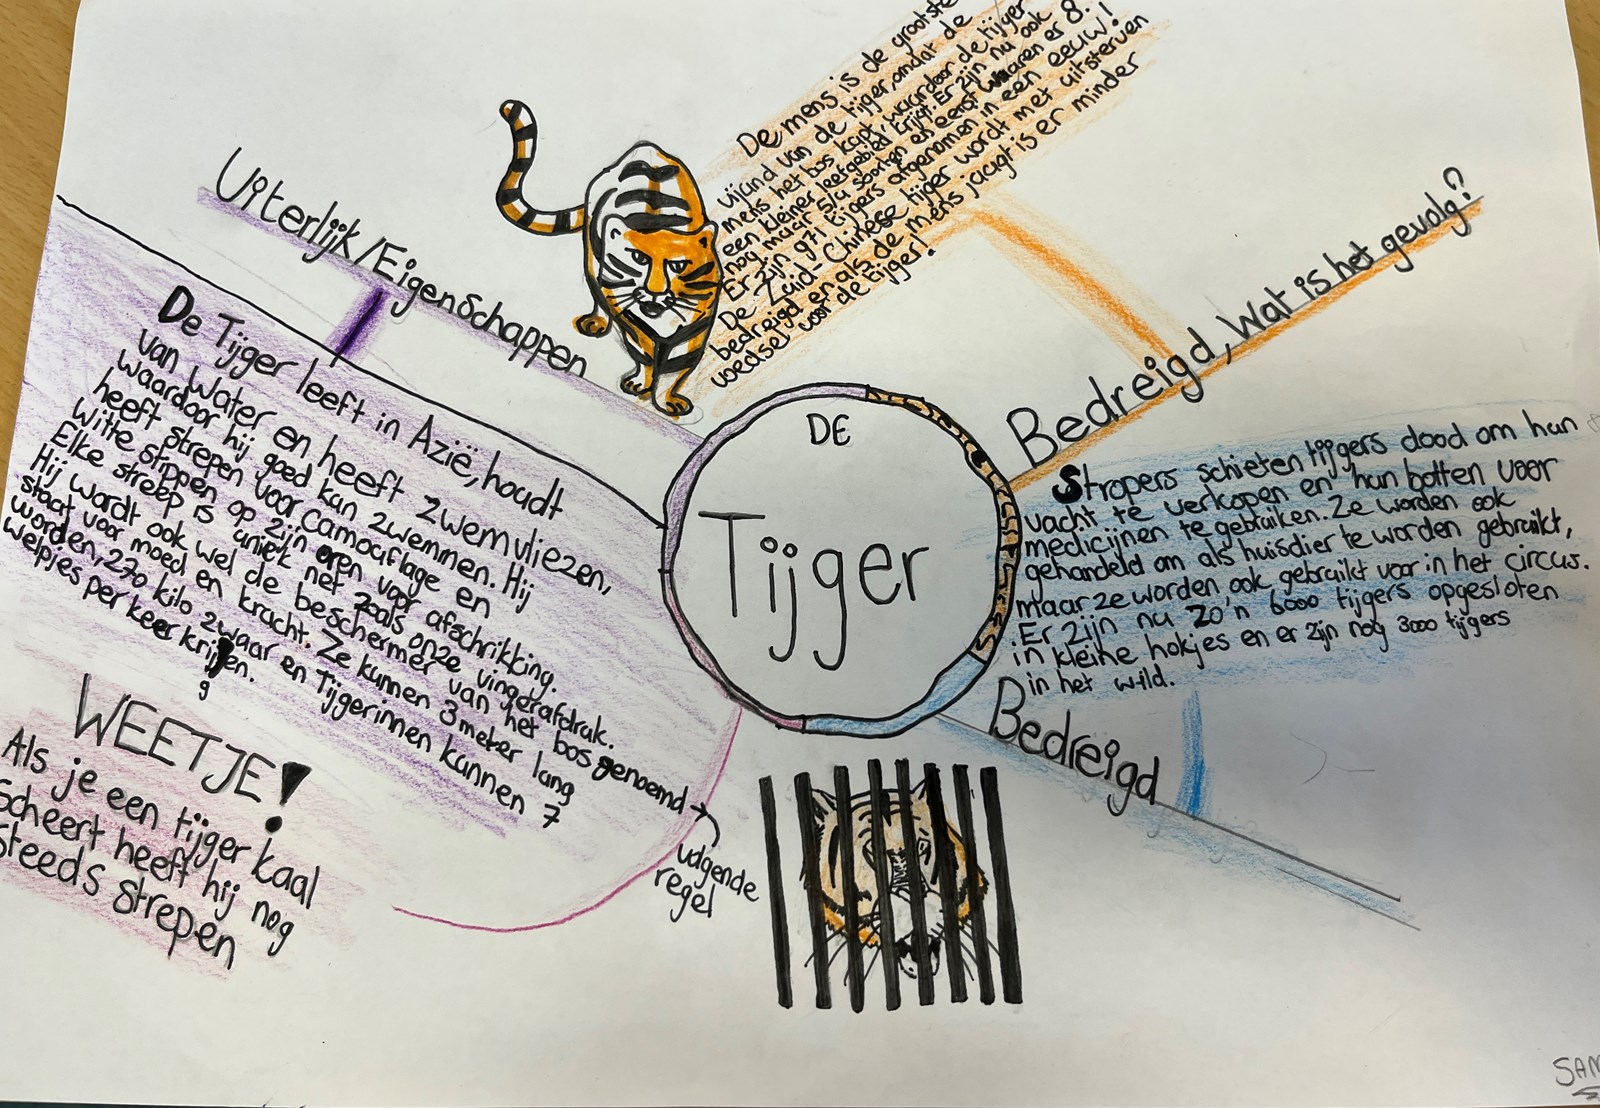 DE
Tijger
Uiterlijk/Eigenschappen
De Tijger leeft in Azië, houdt
van water en heeft zwemvliezen,
waardoor hij goed kan zwemmen. Hij
heeft strepen voor camouflage en
witte stippen op zijn oren voor afschrikking.
Elke streep is uniek net zoals onze vingerafdruk.
Hij wordt ook wel de beschermer van het bos genoemd →
volgende
regel
staat voor moed en kracht. Ze kunnen 3 meter lang
worden, 270 kilo zwaar en Tijgerinnen kunnen 7
welpjes per keer krijgen.
WEETJE!
Als je een tijger kaal
scheert heeft hij nog
steeds strepen
De mens is de grootste
vijand van de tijger, omdat de
mens het bos kapt, waardoor de tijger
een kleiner leefgebied krijgt. Er zijn nu ook
nog maar 5/6 soorten en eerst waaren er 8.
Er zijn 97% tijgers afgenomen in een eeuw!
De Zuid-Chinese tijger wordt met uitsterven
bedreigd en als de mens jaagt is er minder
voedsel voor de tijger!
Bedreigd, Wat is het gevolg?
Stropers schieten tijgers dood om hun
vacht te verkopen en hun botten voor
medicijnen te gebruiken. Ze worden ook
gehandeld om als huisdier te worden gebruikt,
maar ze worden ook gebruikt voor in het circus.
Er zijn nu zo'n 6000 tijgers opgesloten
in kleine hokjes en er zijn nog 3000 tijgers
in het wild.
Bedreigd